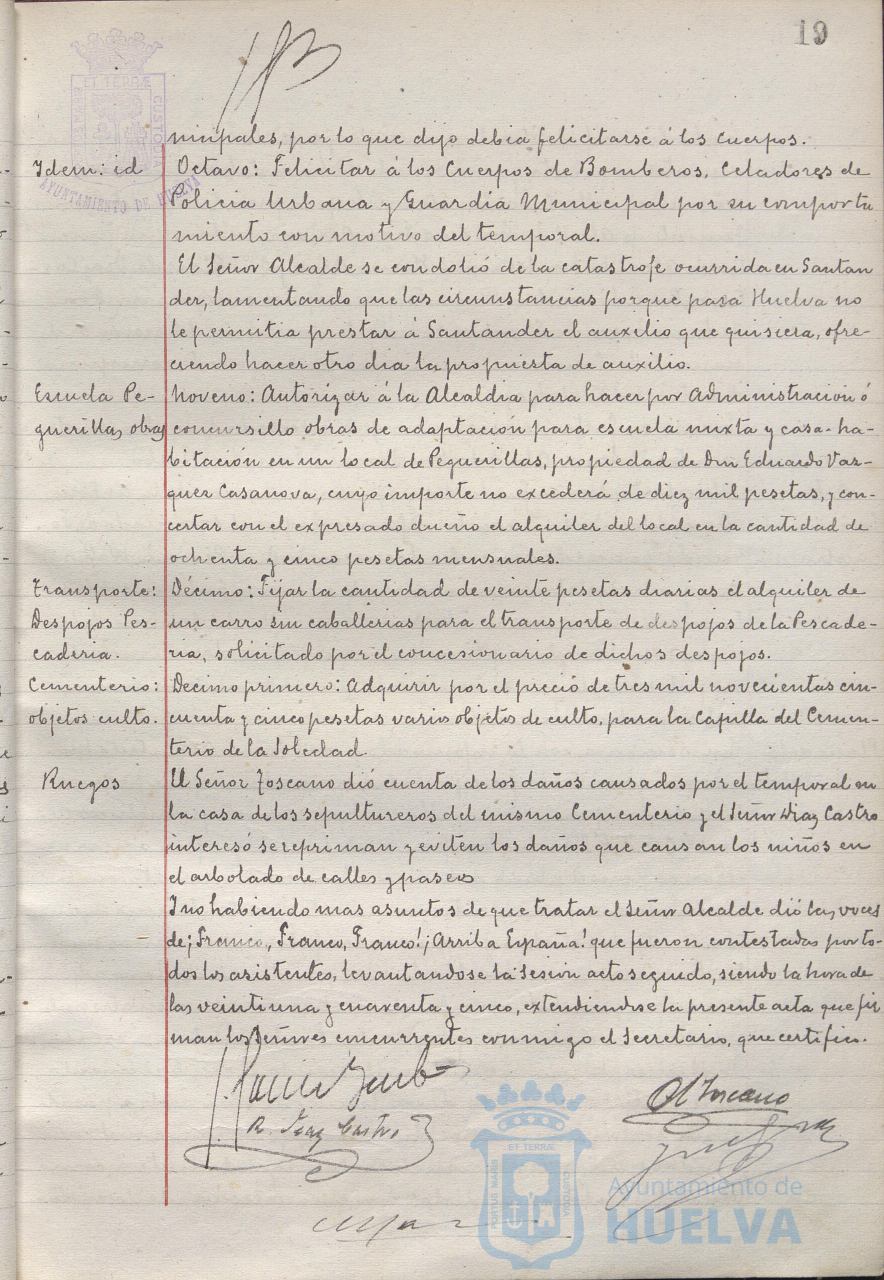 19
ET TERRÆ
CUSTODIA
AYUNTAMIENTO DE HUELVA
nicipales, por lo que dijo debia felicitarse á los Cuerpos.
Idem: id
Octavo: Felicitar á los Cuerpos de Bomberos, Celadores de
Policia Urbana y Guardia Municipal por su comporta
miento con motivo del temporal.
El Señor Alcalde se condolió de la catastrofe ocurrida en Santan
der, lamentando que las circunstancias porque pasa Huelva no
le permitia prestar á Santander el auxilio que quisiera, ofre-
ciendo hacer otro dia la propuesta de auxilio.
Escuela Pe-
guerillas, obras
Noveno: Autorizar á la Alcaldia para hacer por Administración ó
concursillo obras de adaptación para escuela mixta y casa-ha-
bitación en un local de Peguerillas, propiedad de Don Eduardo Vaz-
quez Casanova, cuyo importe no excederá de diez mil pesetas, y con-
certar con el expresado dueño el alquiler del local en la cantidad de
ochenta y cinco pesetas mensuales.
Transporte:
Despojos Pes-
caderia.
Décimo: Fijar la cantidad de veinte pesetas diarias el alquiler de
un carro sin caballerias para el transporte de despojos de la Pescade-
ria, solicitado por el concesionario de dichos despojos.
Cementerio:
objetos culto.
Decimo primero: Adquirir por el precio de tres mil novecientas cin-
cuenta y cinco pesetas varios objetos de culto, para la Capilla del Cemen-
terio de la Soledad.
Ruegos
El Señor Toscano dió cuenta de los daños causados por el temporal en
la casa de los sepultureros del mismo Cementerio y el Señor Diaz Castro
interesó se repriman y eviten los daños que causan los niños en
el arbolado de calles y paseos
Y no habiendo mas asuntos de que tratar el Señor Alcalde dió las voces
de ¡Franco, Franco, Franco! ¡Arriba España! que fueron contestadas por to-
dos los asistentes, levantandose la Sesión acto seguido, siendo la hora de
las veintiuna y cuarenta y cinco, extendiendose la presente acta que fir
man los Señores concurrentes conmigo el Secretario, que certifico.
R. Diaz Castro
Toscano
ET TERRÆ
PORTUS MARIS
CUSTODIA
Ayuntamiento de
HUELVA